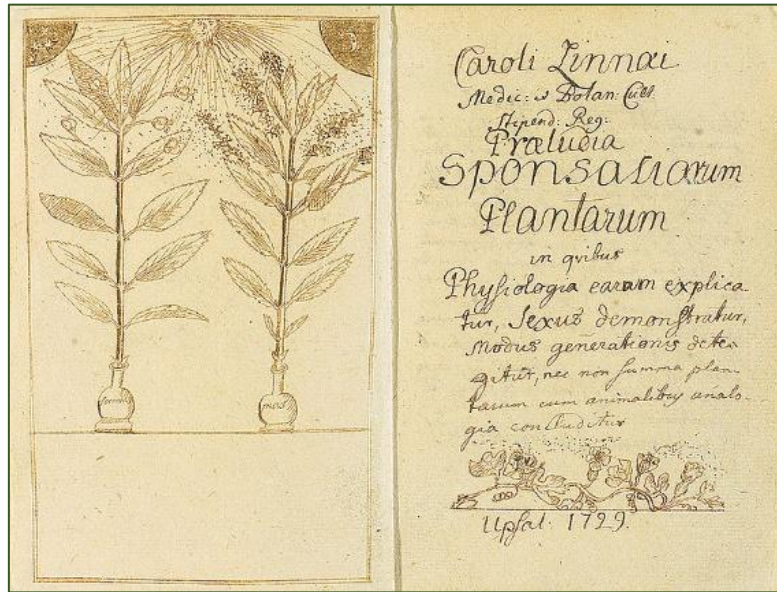 Caroli Linnæi
Medic: & Botan: Cult.
Stipend: Reg:
Præludia
Sponsaliarum
Plantarum
in qvibus
Physiologia earum explica
tur, Sexus demonstratur,
Modus generationis dete-
gitur, nec non summa plan-
tarum cum animalibus analo-
gia concluditur
Upsal. 1729.
mas